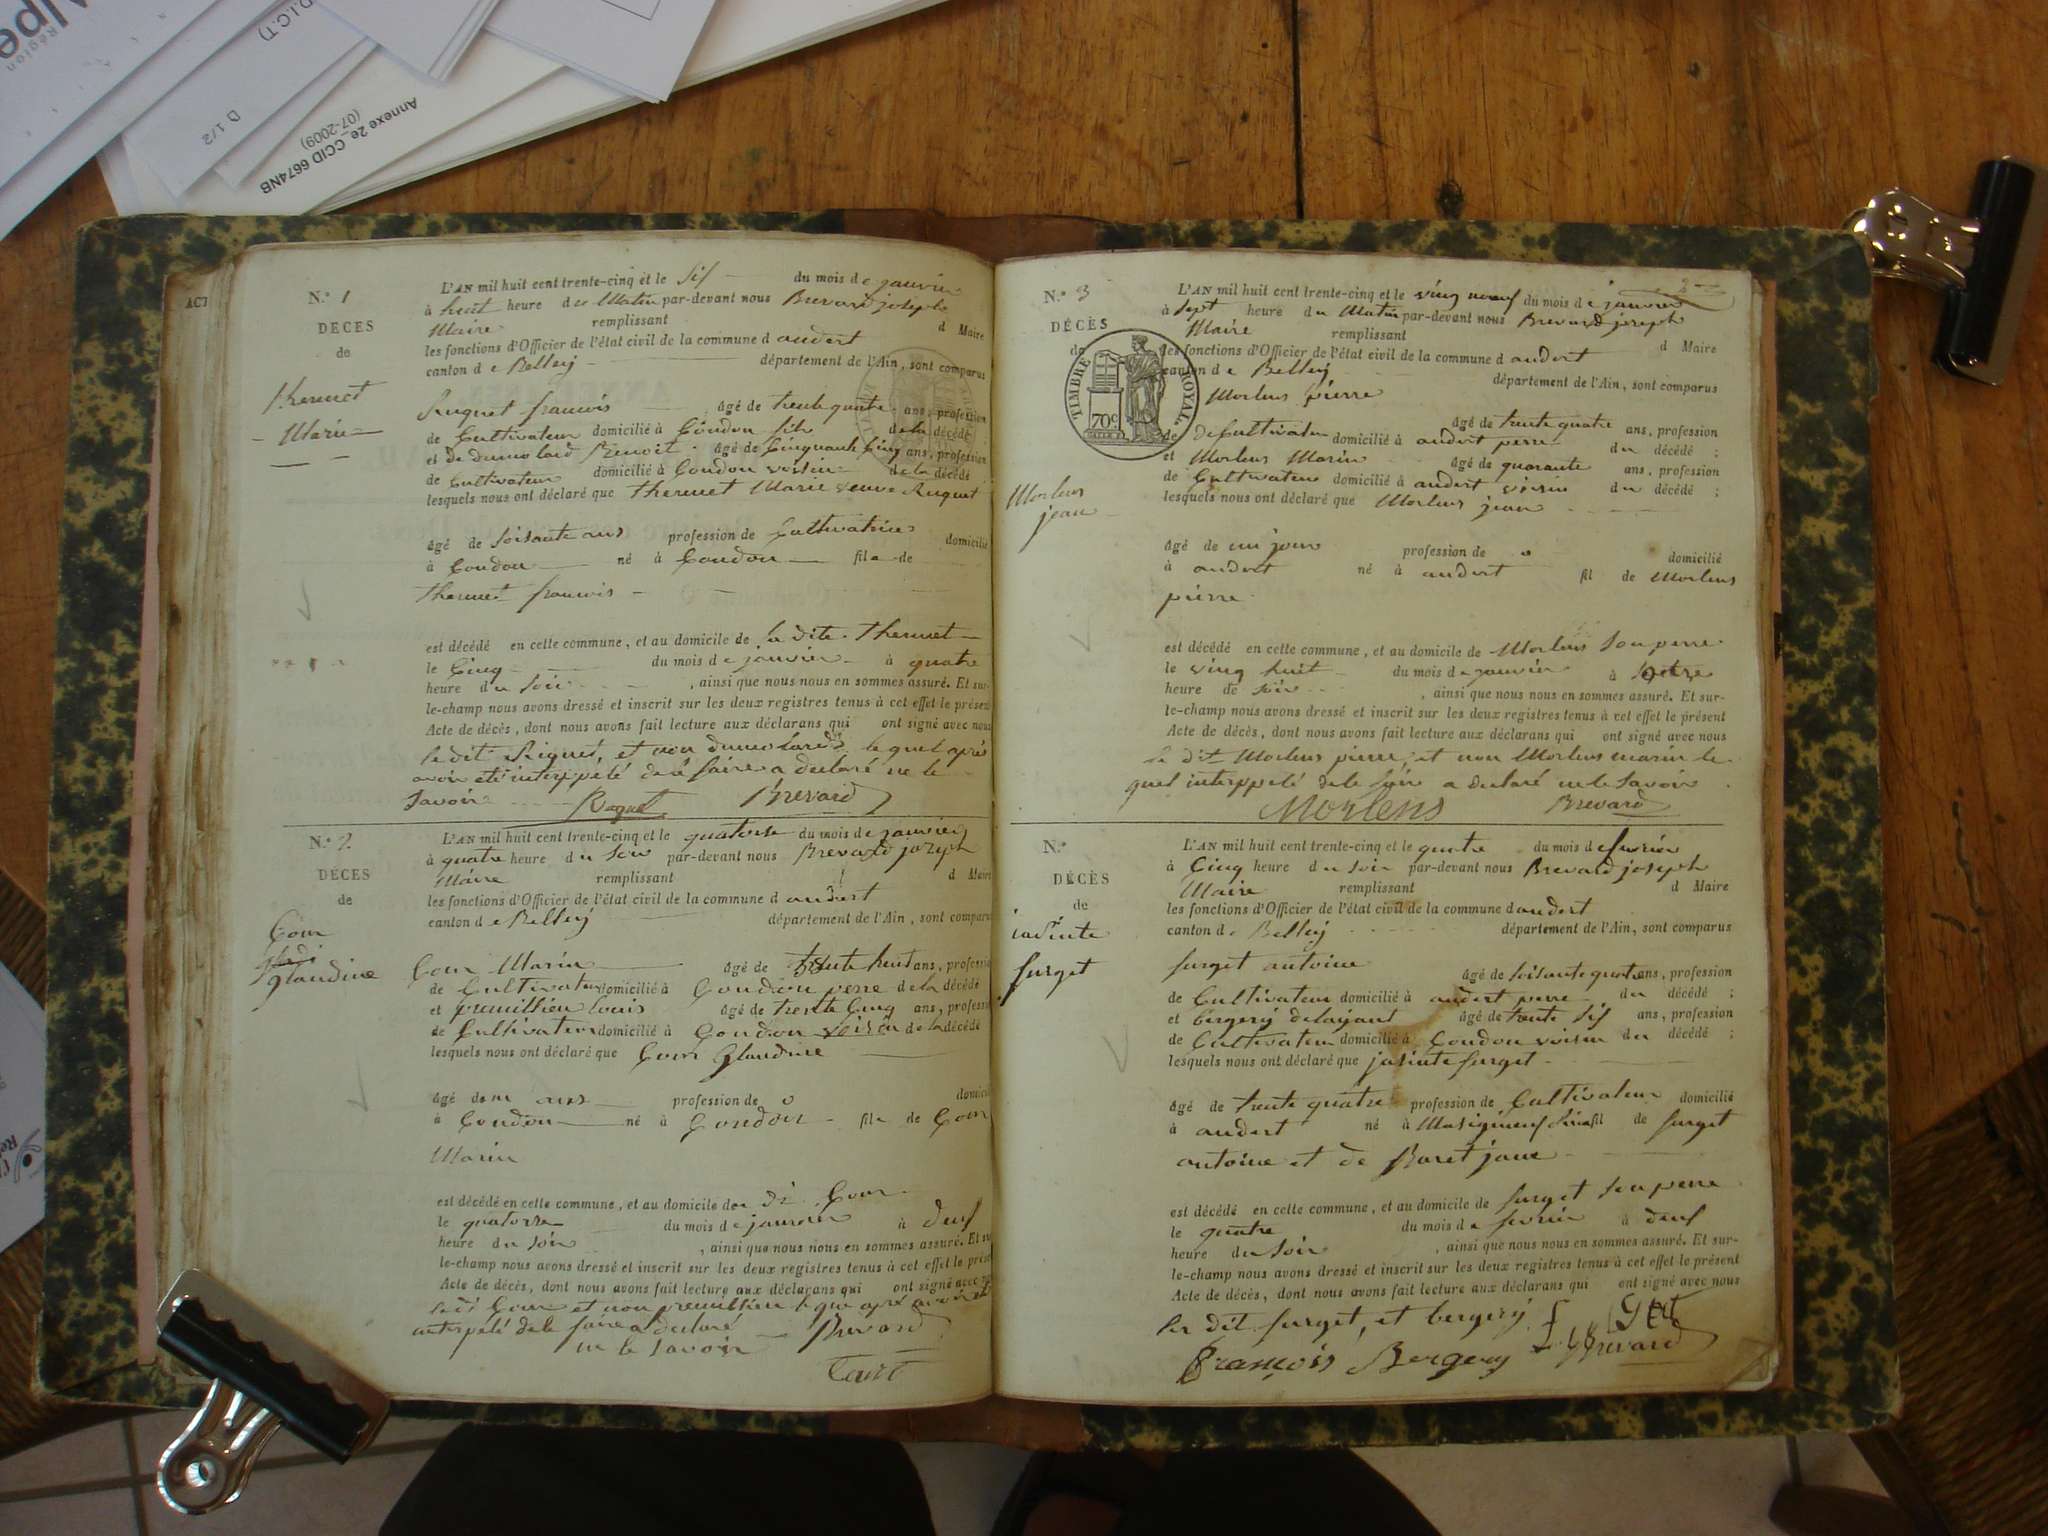 Région
D.I.C.T)
D 1/2
Annexe 2e_CCID 6674NB
(07-2009)
ACT
N.° 1
DECES
de
thermet
Marie
L'AN mil huit cent trente-cinq et le Six du mois de janvier
à huit heure du Matin par-devant nous Brevard joseph
Maire remplissant d Maire
les fonctions d'Officier de l'état civil de la commune d andert
canton de Belley département de l'Ain, sont comparus
Ruguet francois âgé de trente quatre ans, profession
de Cultivateur domicilié à Condon fils de la décédé
et de dumolard Benoit âgé de Cinquante Cinq ans, profession
de Cultivateur domicilié à Condon voisin de la décédé
lesquels nous ont déclaré que thermet Marie veuve Ruguet
âgé de soisante ans profession de Cultivatrice domicilié
à Condon né à Condon file de
thermet francois
est décédé en cette commune, et au domicile de la dite thermet
le Cinq du mois de janvier à quatre
heure du soir , ainsi que nous nous en sommes assuré. Et sur-
le-champ nous avons dressé et inscrit sur les deux registres tenus à cet effet le présent
Acte de décès, dont nous avons fait lecture aux déclarans qui ont signé avec nous
le dit Ruguet, et non dumolard, le quel après
avoir été interppelé de le faire a declaré ne le
Savoir
Ruguet Brevard
N.° 2.
DÉCES
de
Gour
Glaudine
L'AN mil huit cent trente-cinq et le quatorse du mois de janvier
à quatre heure du soir par-devant nous Brevard joseph
Maire remplissant d Maire
les fonctions d'Officier de l'état civil de la commune d andert
canton de Belley département de l'Ain, sont comparus
Gour Marin âgé de trente huit ans, profession
de Cultivateur domicilié à Condon perre de la décédé
et premillieu louis âgé de trente Cinq ans, profession
de Cultivateur domicilié à Condon voisin de la décédé
lesquels nous ont déclaré que Gour Glaudine
âgé de ans profession de 0 domicilié
à Condon né à Condon file de Gour
Marin
est décédé en cette commune, et au domicile du di Gour
le quatorse du mois de janvier à deux
heure du soir , ainsi que nous nous en sommes assuré. Et sur
le-champ nous avons dressé et inscrit sur les deux registres tenus à cet effet le présent
Acte de décès, dont nous avons fait lecture aux déclarans qui ont signé avec nous
le di Gour et non premillieu le que apré avoir été
interpélé de le faire a declaré
ne le savoir Brevard
N.° 3
DÉCÈS
de
Morlens
jean
TIMBRE ROYAL
70c
L'AN mil huit cent trente-cinq et le vinq neuf du mois de janvier
à sept heure du Matin par-devant nous Brevard joseph
Maire remplissant d Maire
les fonctions d'Officier de l'état civil de la commune d andert
canton de Belley département de l'Ain, sont comparus
Morlens pierre
âgé de trente quatre ans, profession
de de Cultivateur domicilié à andert perre du décédé ;
et Morlens Marin âgé de quarante ans, profession
de Cultivateur domicilié à andert voisin du décédé ;
lesquels nous ont déclaré que Morlens jean
âgé de un jour profession de 0 domicilié
à andert né à andert fil de Morlens
pierre
est décédé en cette commune, et au domicile de Morlens son perre
le vinq huit du mois de janvier à
heure de soir , ainsi que nous nous en sommes assuré. Et sur-
le-champ nous avons dressé et inscrit sur les deux registres tenus à cet effet le présent
Acte de décès, dont nous avons fait lecture aux déclarans qui ont signé avec nous
le dit Morlens pierre, et non Morlens marin le
quel interppelé de le faire a declaré ne le savoir
Morlens Brevard
N.°
DÉCÈS
de
surget
L'AN mil huit cent trente-cinq et le quatre du mois de fevrier
à Cinq heure du soir par-devant nous Brevard joseph
Maire remplissant d Maire
les fonctions d'Officier de l'état civil de la commune d andert
canton de Belley département de l'Ain, sont comparus
surget antoine âgé de soisante quatre ans, profession
de Cultivateur domicilié à andert perre du décédé ;
et bergery âgé de trente six ans, profession
de Cultivateur domicilié à Condon voisin du décédé ;
lesquels nous ont déclaré que jasinte surget
âgé de trente quatre profession de Cultivateur domicilié
à andert né à fil de surget
antoine et de Baret jane
est décédé en cette commune, et au domicile de surget son perre
le quatre du mois de fevrier à deux
heure du soir , ainsi que nous nous en sommes assuré. Et sur-
le-champ nous avons dressé et inscrit sur les deux registres tenus à cet effet le présent
Acte de décès, dont nous avons fait lecture aux déclarans qui ont signé avec nous
les dit surget, et bergery
François Bergery Brevard